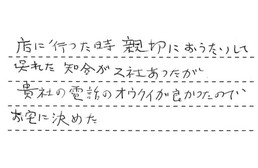 店に行った時親切におうたいして
呉れた知合が2社あったが
貴社の電話のオウタイが良かったので
お宅に決めた